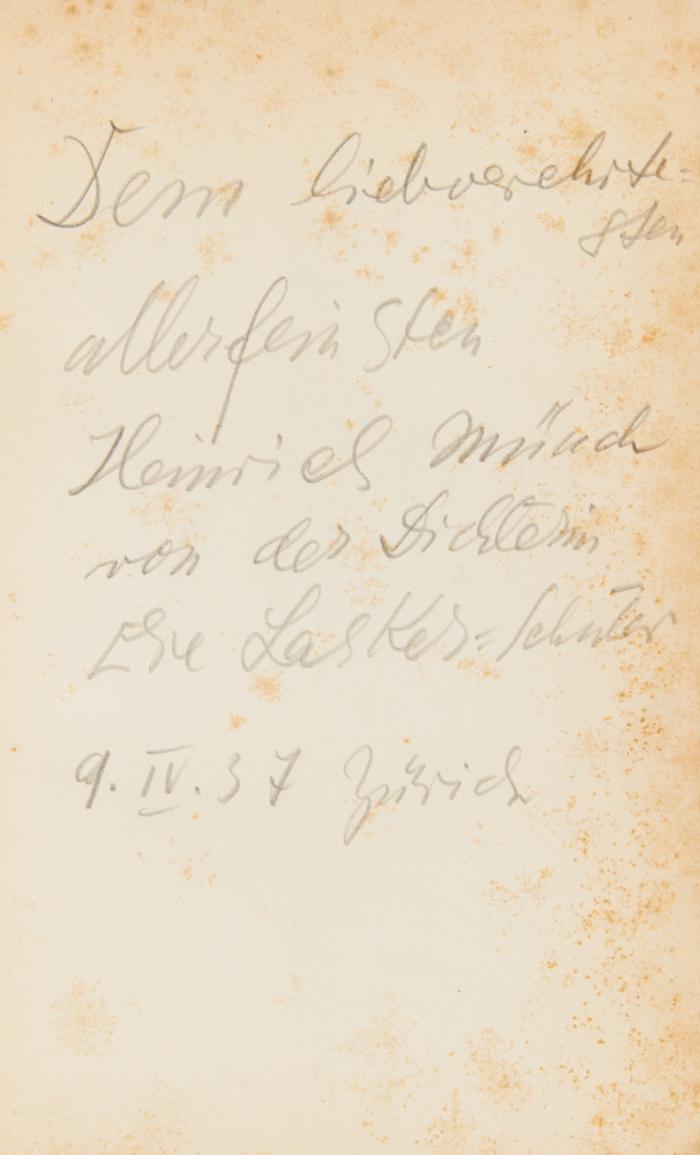 Dem liebverehrte=
sten
allerfeinsten
Heinrich Münch
von der Dichterin
Else Lasker=Schüler
9. IV. 37 Zürich